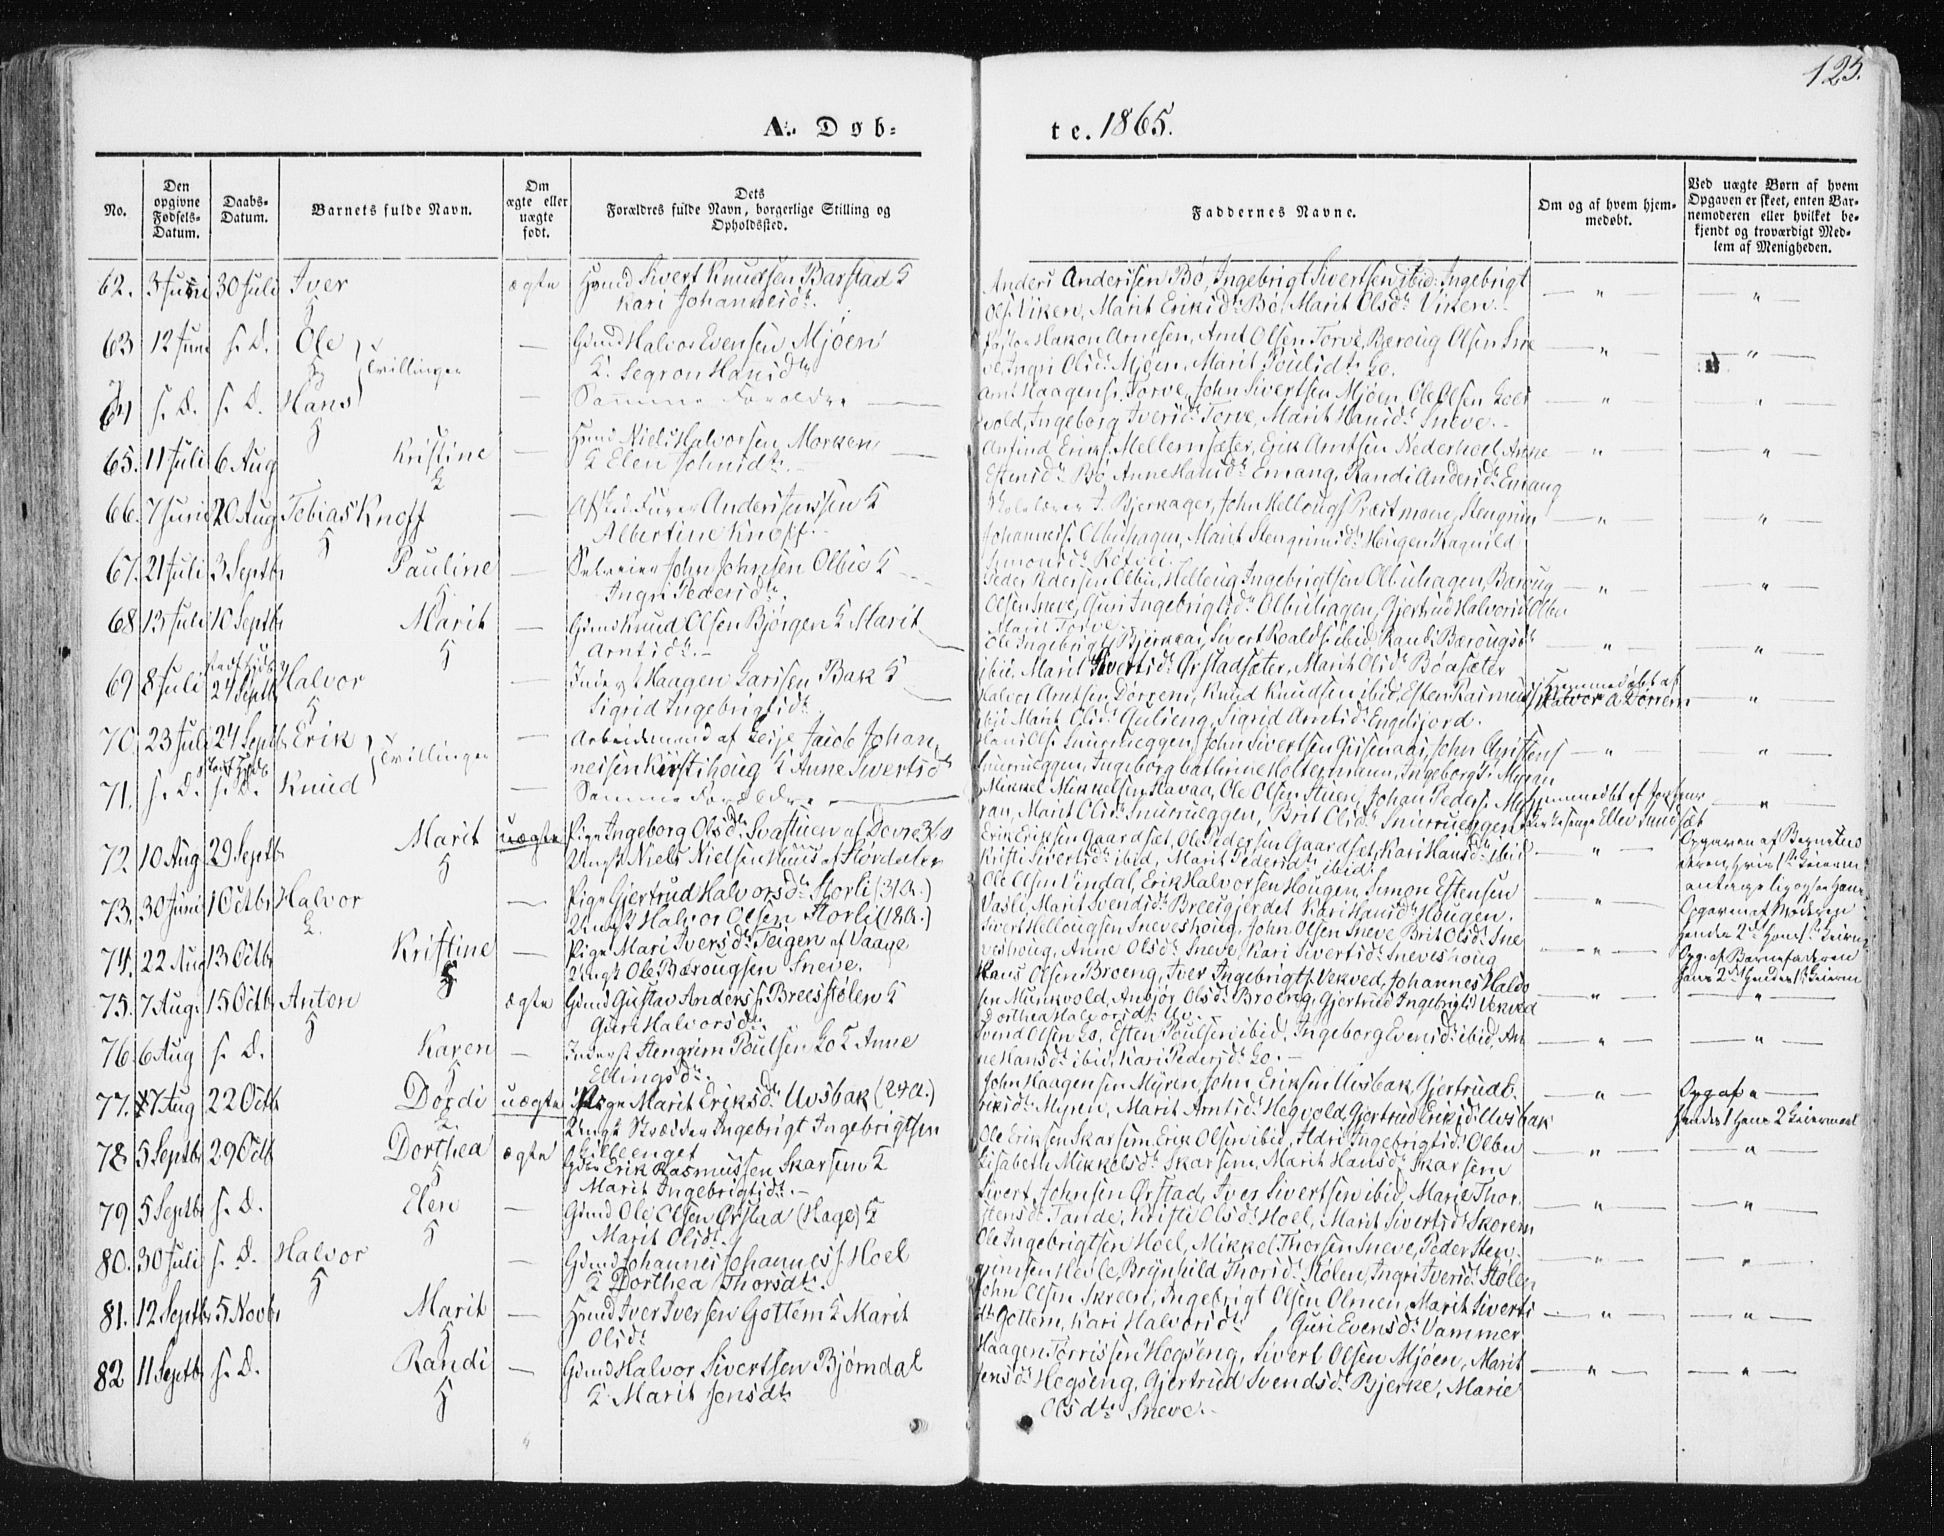 125.
A. Døb-
te. 1865.
No.
Den opgivne Fødsels-Datum.
Daabs-Datum.
Barnets fulde Navn.
Om ægte eller uægte født.
Dets Forældres fulde Navn, borgerlige Stilling og Opholdssted.
Faddernes Navne.
Om og af hvem hjemmedøbt.
Ved uægte Børn af hvem Opgaven er skeet, enten Barnemoderen eller hvilket bekjendt og troværdigt Medlem af Menigheden.
62. 3 Juni 30 Juli Iver ægte Hmd Sivert Knudsen Barstad &
Kari Johannesdt.
Anders Andersen Bø, Ingebrigt Sivertsen ibid. Ingebrigt
Ols. Viken, Marit Eriksdt. Bø, Marit Olsdt. Viken.
63 12 Juni s. D. Ole Tvillinger — Gmd Halvor Evensen Mjøen
&. Segron Hansdt.
Hakon Arnesen, Arnt Olsen Torve, Bæroug Olsen Sne
ve, Ingri Olsdt. Mjøen, Marit Poulsdt. Lo.
64 s. D. s. D. Hans — Samme Forældre —
Arnt Haagens. Torve, John Sivertsen Mjøen, Ole Olsen
vold, Ingeborg Iversdt. Torve, Marit Hansdt. Sneve.
65. 11 Juli 6 Aug Kristine — Hmd Niels Halvorsen Morken
& Elen Johnsdt.
Anfind Eriks. Mellemsæter, Erik Arntsen Nederhoel, Anne
Estensdt. Bø, Anne Hansdt. Emang, Randi Andersdt. Emang
66. 7 Juni 20 Aug Tobias Knoff — Anders Jenssen &
Albertine Knoff.
Skolelærer J. Bjerkager, John Hellougs. Stengrim
Johanness. Olbuhagen, Marit Stengrimsdt. Hougen Ragnild
Simonsdt.
67. 21 Juli 3 Septbr Pauline — Selveier John Johnsen Olbu &
Ingri Pedersdt.
Peder Pedersen Olbu, Helloug Ingebrigtsen Olbuhagen, Bæroug
Olsen Sneve, Guri Ingebrigtsdt. Olbuhagen, Gjertrud Halvorsdt. Olbu
Marit Torve
68 13 Juli 10 Septbr Marit — Gmd Knud Olsen Bjørgen & Marit
Arntsdt.
Ole Ingebrigts. Bjerkaas, Sivert Roalds. ibid, Randi Bærougsdt
ibid. Marit Sivertsdt. Ørstadsæter, Marit Olsdt. Bøasæter
69 8 Juli 24 Septbr Halvor — Inderst Haagen Larssen Bak &
Sigrid Ingebrigtsdt.
Halvor Arntsen Dørrem, Knud Knudsen ibid, Esten Rasmuss.
ibid. Marit Olsdt. Gulseng, Sigrid Arntsdt. Engelsjord.
Hjemmedøbt af
Halvor A Dørrem
70. 23 Juli 24 Septbr Erik Tvillinger — Arbeidsmand af Leije Jacob Johan
nessen Kirstihoug & Anne Sivertsdt
Hans Ols. Snurrueggen, John Sivertsen Gisenaas, John Christens.
Snurrueggen, Ingeborg Cathrine Holtermann, Ingeborg S. Myran
71. s. D. s. D. Knud — Samme Forældre —
Mikkel Mikkelsen Havaa, Ole Olsen Stuen, Johan Peders. My
ran, Marit Olsdt. Snurrueggen, Brit Olsdt. Snurrueggen
Hjemmedøbt af
72. 10 Aug 29 Septbr Marit uægte Pige Ingeborg Olsdt. Svastuen af Dovre 36 a
Ungk Niels Nielsen Knus af Størdalen
Erik Eriksen Gaardsæt, Ole Pedersen Gaardsæt, Kari Hansdt. ibid
Kristi Sivertsdt. ibid, Marit Pedersdt. ibid.
73. 30 Juni 1 Octbr Halvor — Pige Gjertrud Halvorsdt. Storli (31 A.)
Ungk Halvor Olsen Storli (18 A.)
Ole Olsen Vindal, Erik Halvorsen Hougen, Simon Estensen
Vasli, Marit Svendsdt. Breesgjerdet Kari Hansdt. Hougen.
Opgaven af Moderen
74. 22 Aug 13 Octbr Kristine — Pige Mari Iversdt. Teigen af Vaage
Ungk Ole Bærougsen Sneve.
Sivert Hellougsen Sneveshoug, John Olsen Sneve, Brit Olsdt. Sne
veshoug, Anne Olsdt. Sneve, Kari Sivertsdt. Sneveshoug
Opg. af Barnefaderen
75. 7 Aug. 15 Octbr Anton ægte Gmd Gustav Anders s. Breesstølen &
Guri Halvorsdt.
Hans Olsen Broeng, Iver Ingebrigts. Vekved, Johannes Halvo
sen Munkvold, Anbjør Olsdt. Broeng, Gjertrud Ingebrigtsd. Vekved
Dorthea Halvorsdt.
76. 6 Aug s. D. Karen — Inderst Stengrim Poulsen Lo & Anne
Ellingsdt.
Svend Olsen Lo, Esten Poulsen ibid, Ingeborg Evensdt. ibid, An
ne Hansdt. ibid, Kari Pedersdt. Lo.
77. 7 Aug 22 Octb Dordi uægte Pige Marit Eriksdt. Uvsbak (24 A.)
Ungk Ingebrigt Ingebrigtsen
Gilleenget
John Haagensen Myren, John Eriksen Uvsbak, Gjertrud E
riksdt. Myren, Marit Arntsdt. Hegvold, Gjertrud Eriksdt. Uvsbak
78 5 Septbr 29 Octb Dorthea ægte Erik Rasmussen Skarsem &
Marit Ingebrigtsdt.
Ole Eriksen Skarsem, Erik Olsen ibid, Ildri Ingebrigtsdt. Olbu
Lisabeth Mikkelsdt. Skarsem, Marit Hansdt. Skarsem
79 5 Septbr s. D. Elen — Gmd Ole Olsen Ørstad (Hage) &
Marit Olsdt.
Sivert Johnsen Ørstad, Iver Sivertsen ibid, Marie Thor
stensdt. Tande, Kristi Olsdt. Hoel, Marit Sivertsdt. Skorem
80. 30 Juli s. D. Halvor — Gmd Johannes Johannes s. Hoel
& Dorthea Thorsdt.
Ole Ingebrigtsen Hoel, Mikkel Thorsen Sneve, Peder Sten
grimsen Hevle, Brynhild Thorsdt. Stølen, Ingri Iversdt. Stølen
81. 12 Septbr 5 Novbr Marit — Hmd Iver Iversen Gottem & Marit
Olsdt
John Olsen Skreen, Ingebrigt Olsen Olmen, Marit Siverts
dt. Gottem, Kari Halvorsdt. Guri Evensdt. Vammer
82 11 Septbr s. D. Randi — Gmd Halvor Sivertsen Bjørndal
& Marit Jensdt.
Haagen Tørrissen Hegseng, Sivert Olsen Mjøen, Marit
Jensdt. Hegseng, Gjertrud Svendsdt. Bjerke, Marie
Olsdt. Sneve.